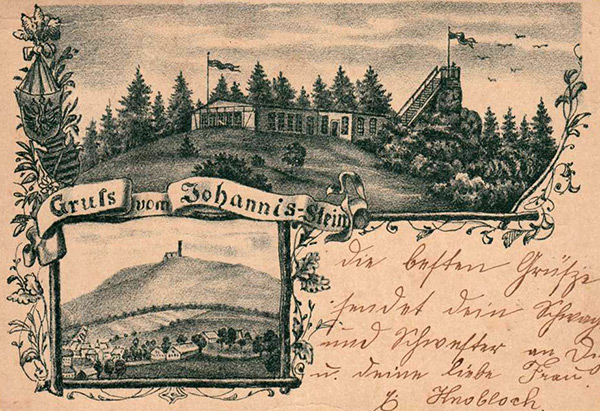 Gruß vom Johannis-Stein
die besten Grüße
sendet dein
und Schwester an
u. deine liebe Frau
Knobloch